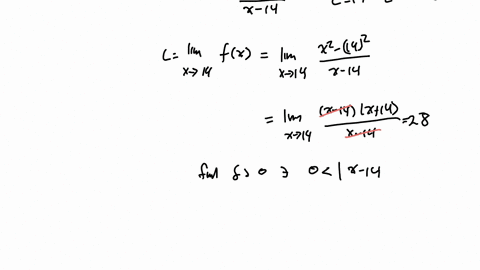 x-14
L = lim x→14 f(x) = lim x→14 x²-(14)² / x-14
= lim x→14 (x-14)(x+14) / x-14 = 28
find δ > 0 ∋ 0 < | x-14